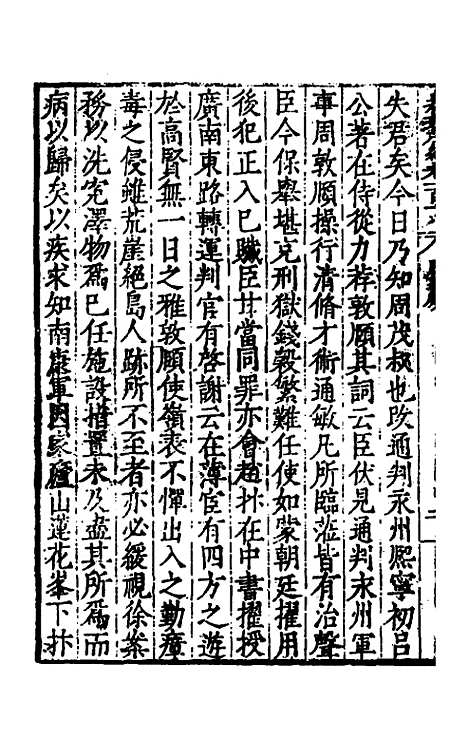 失君矣今日乃知周茂叔也改通判永州熙寧初吕
公著在侍從力荐敦頤其詞云臣伏見通判永州軍
事周敦頤操行清脩才術通敏凡所臨蒞皆有治聲
臣今保舉堪充刑獄錢穀繁難任使如蒙朝廷擢用
後犯正入已贓臣甘當同罪亦會趙抃在中書擢授
廣南東路轉運判官有啓謝云在薄宦有四方之遊
於高賢無一日之雅敦頤使嶺表不憚出入之勤瘴
毒之侵雖荒崖絕島人跡所不至者亦必緩視徐案
務以洗寃澤物爲已任施設措置未及盡其所爲而
病以歸矣以疾求知南康軍因家廬山蓮花峯下抃